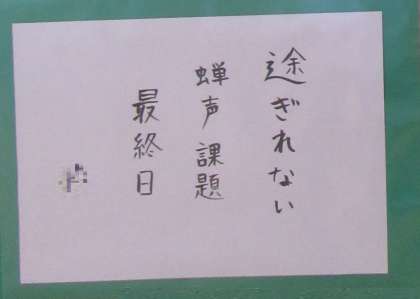 途ぎれない
蝉声 課題
最終日